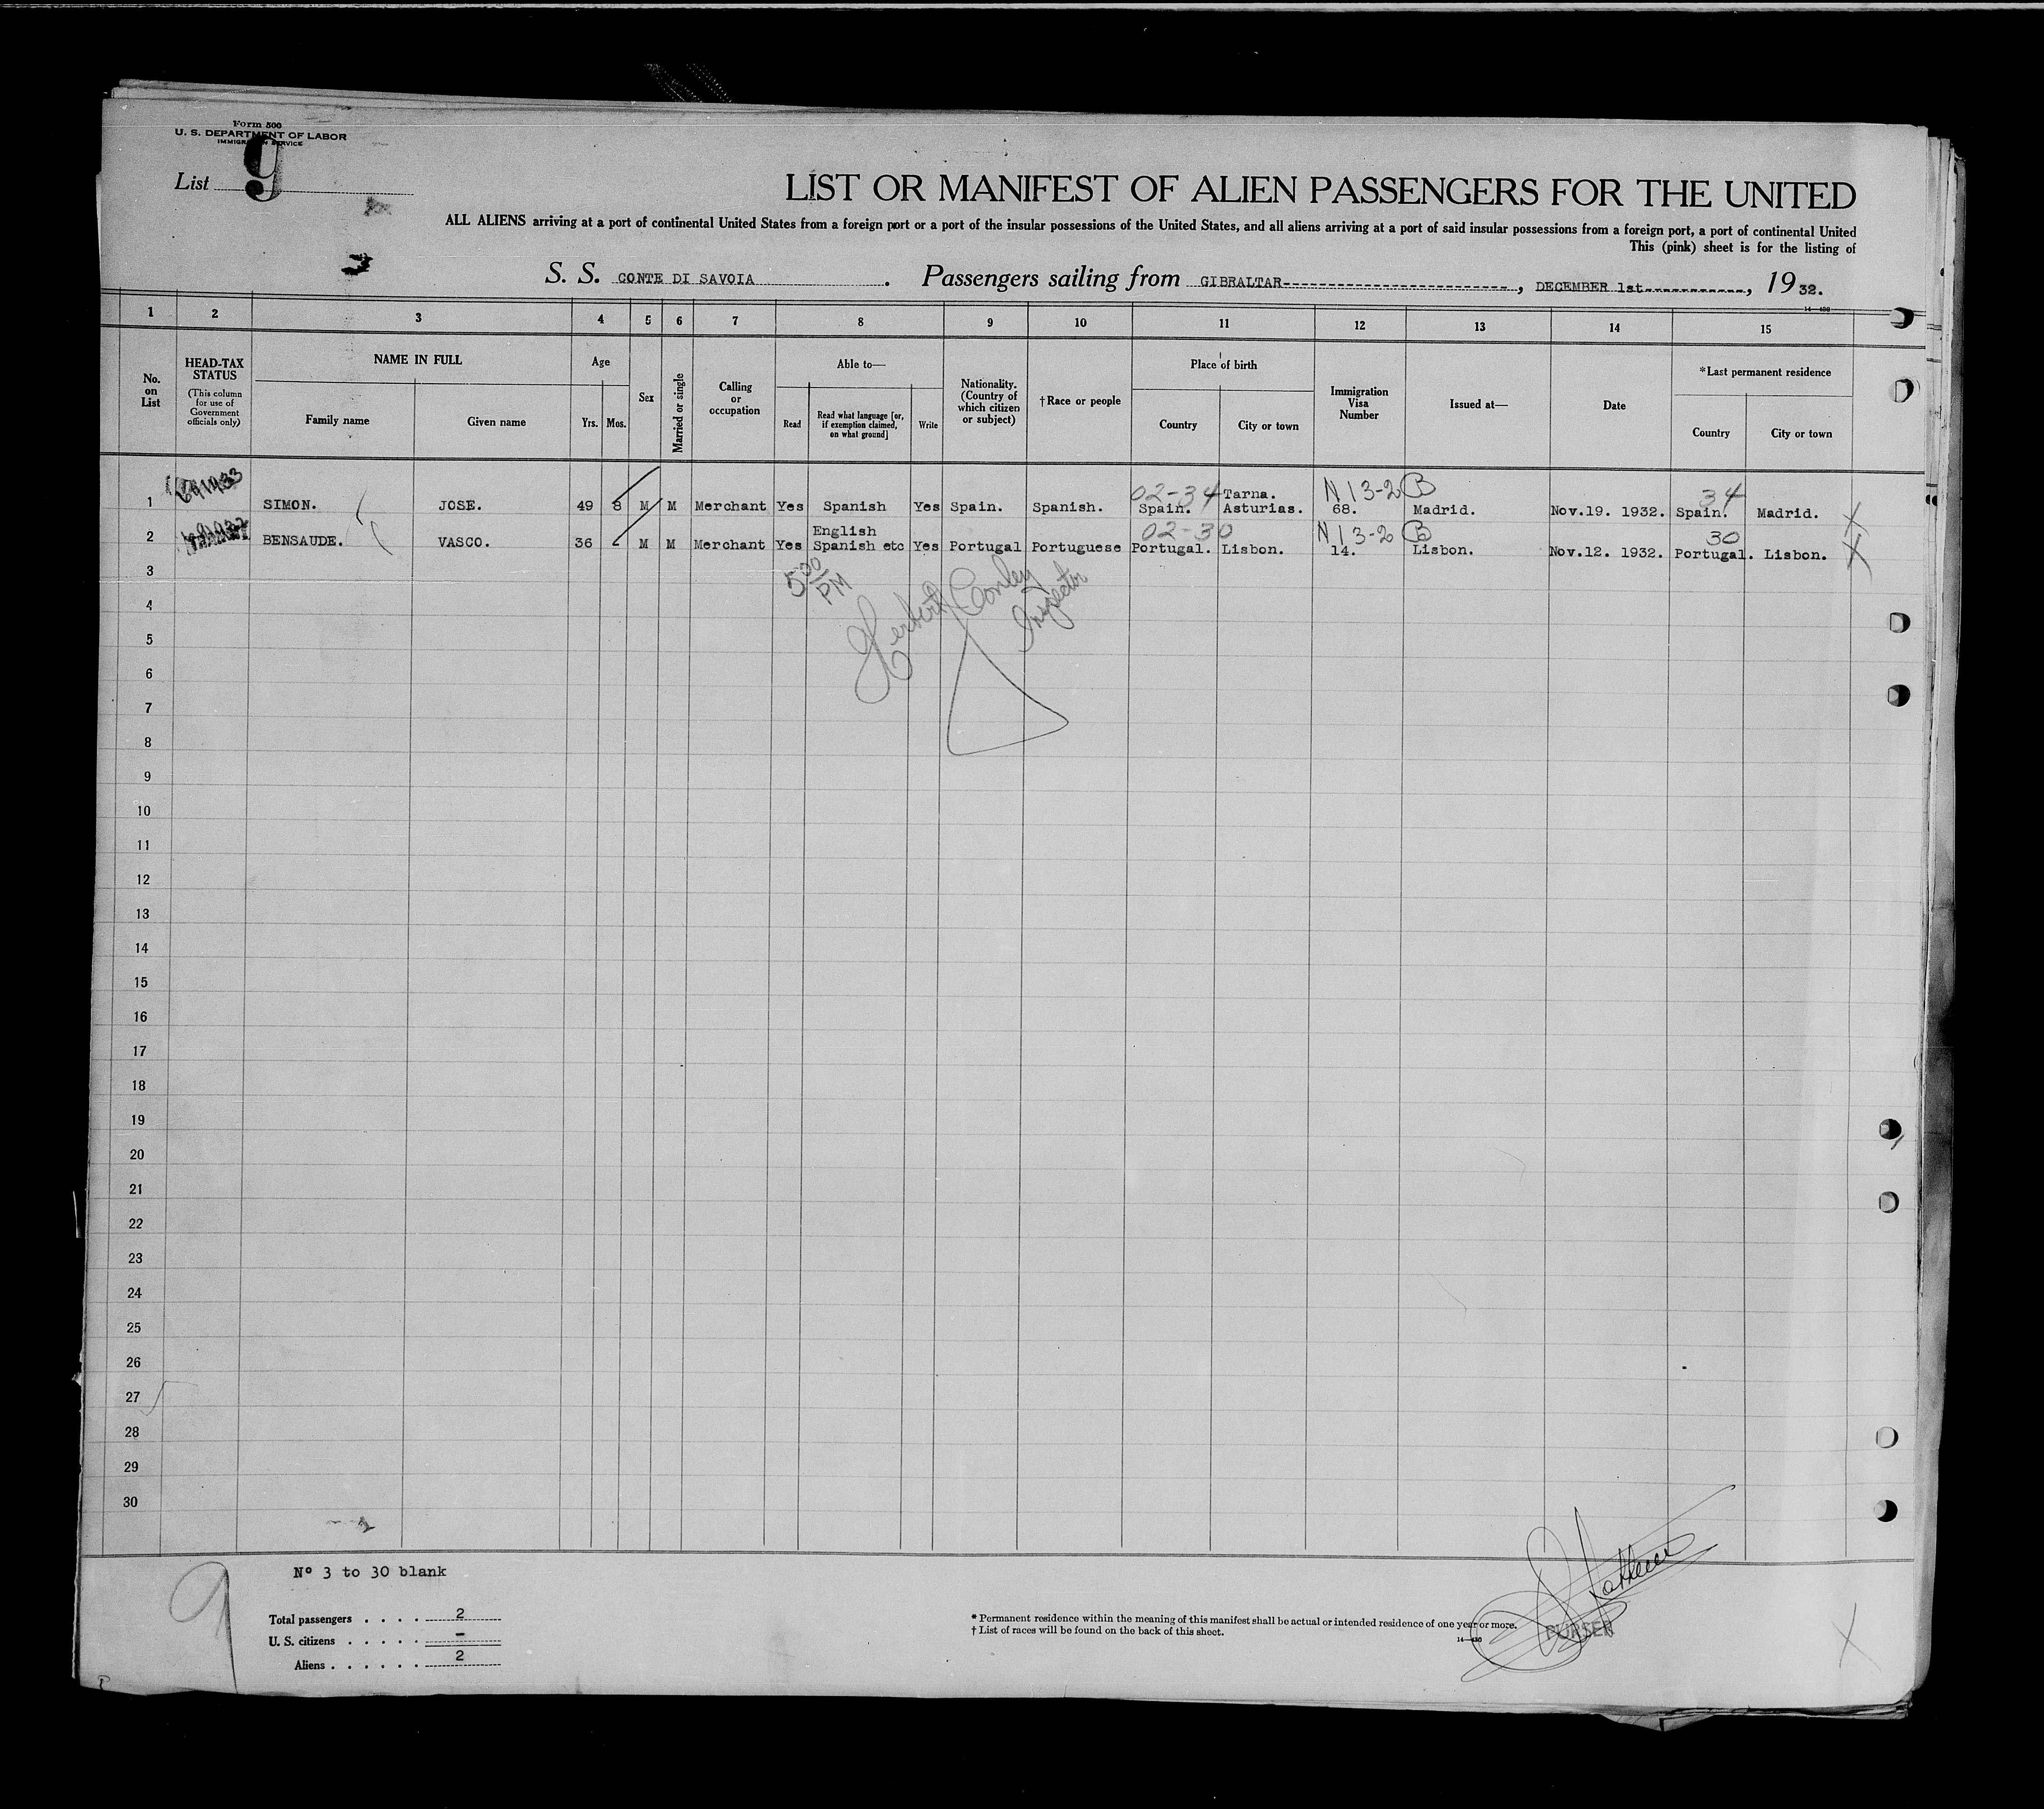 Form 500
U. S. DEPARTMENT OF LABOR
IMMIGRATION SERVICE
List 9
LIST OR MANIFEST OF ALIEN PASSENGERS FOR THE UNITED
ALL ALIENS arriving at a port of continental United States from a foreign port or a port of the insular possessions of the United States, and all aliens arriving at a port of said insular possessions from a foreign port, a port of continental United
This (pink) sheet is for the listing of
S. S. CONTE DI SAVOIA. Passengers sailing from GIBRALTAR, DECEMBER 1st, 1932.
14—430
1 2 3 4 5 6 7 8 9 10 11 12 13 14 15
No. on List
HEAD-TAX STATUS
(This column for use of Government officials only)
NAME IN FULL
Family name Given name
Age
Yrs. Mos.
Sex
Married or single
Calling or occupation
Able to—
Read
Read what language [or, if exemption claimed, on what ground]
Write
Nationality. (Country of which citizen or subject)
†Race or people
Place of birth
Country City or town
Immigration Visa Number
Issued at—
Date
*Last permanent residence
Country City or town
02-34 Tarna. N13-2 B 34
1 SIMON. JOSE. 49 8 M M Merchant Yes Spanish Yes Spain. Spanish. Spain. Asturias. 68. Madrid. Nov.19. 1932. Spain. Madrid. X
English 02-30 N13-2 B 30
2 BENSAUDE. VASCO. 36 - M M Merchant Yes Spanish etc Yes Portugal Portuguese Portugal. Lisbon. 14. Lisbon. Nov.12. 1932. Portugal. Lisbon. X
3
5 00 PM
Herbert Conley
Inspector
4
5
6
7
8
9
10
11
12
13
14
15
16
17
18
19
20
21
22
23
24
25
26
27
28
29
30
9
Nº 3 to 30 blank
Total passengers . . . . 2
U. S. citizens . . . . . -
Aliens . . . . . . 2
* Permanent residence within the meaning of this manifest shall be actual or intended residence of one year or more.
† List of races will be found on the back of this sheet.
14—430
PURSER
X